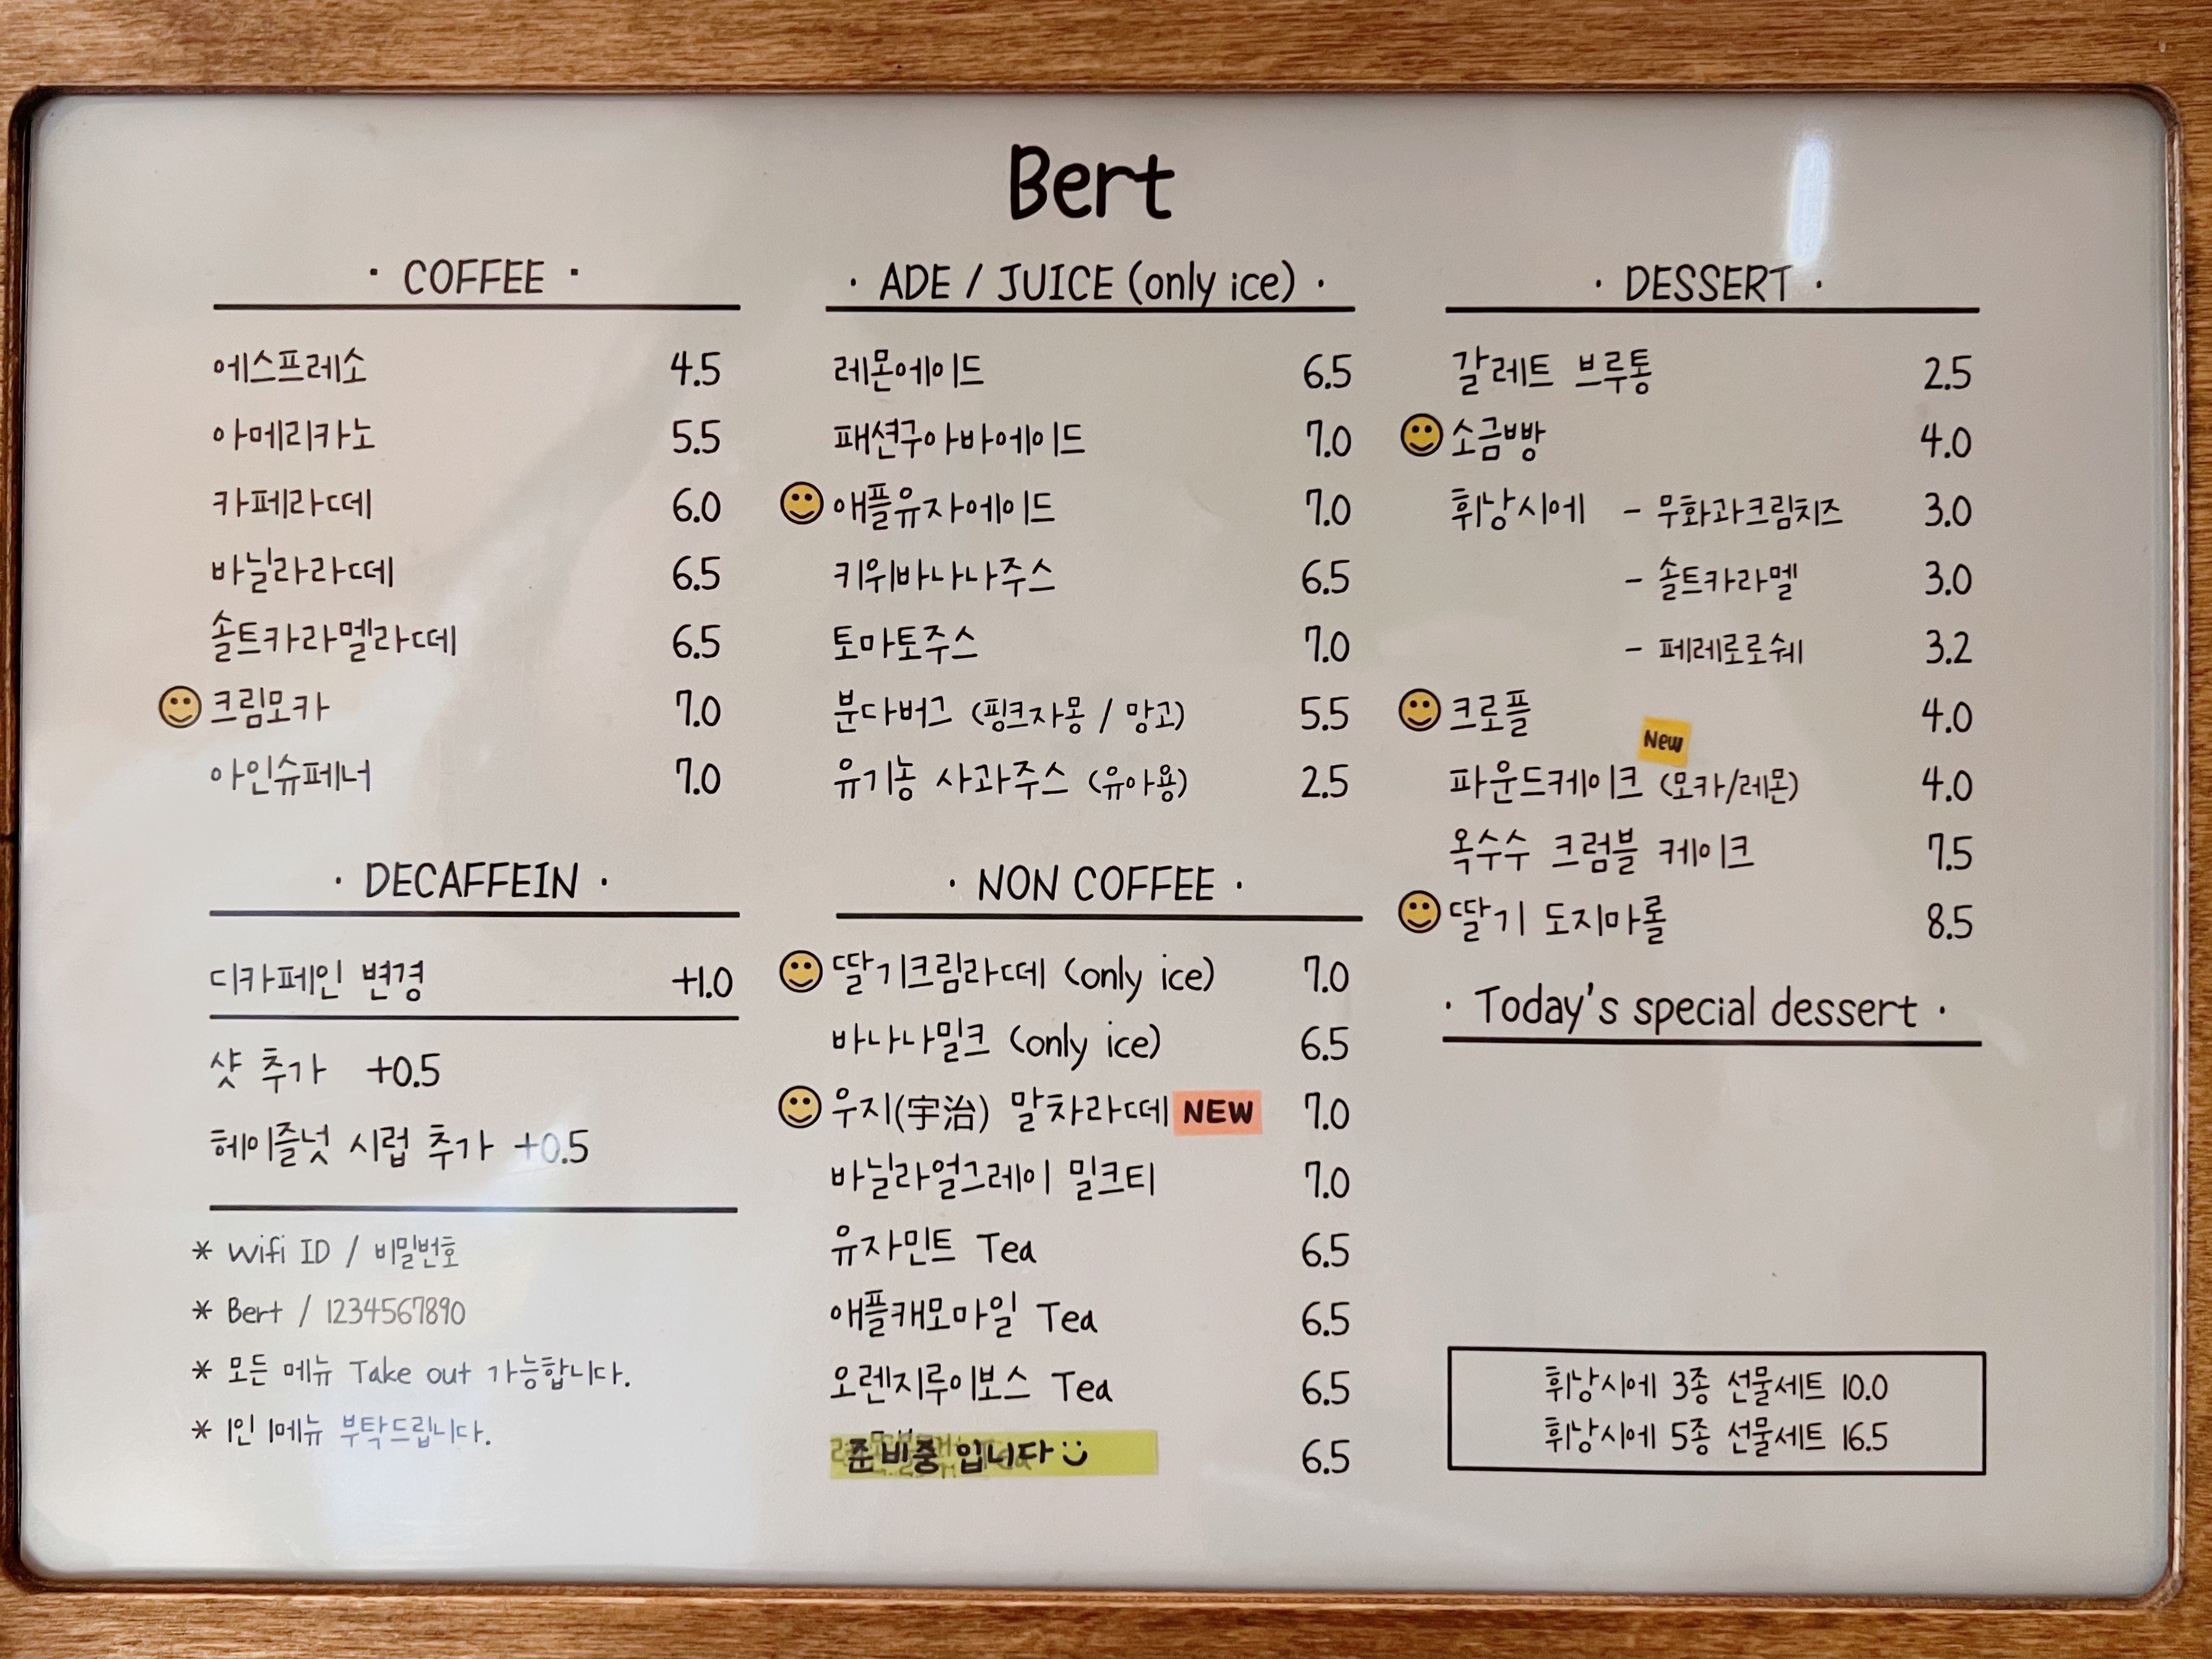 Bert
· COFFEE ·
에스프레소 4.5
아메리카노 5.5
카페라떼 6.0
바닐라라떼 6.5
솔트카라멜라떼 6.5
크림모카 7.0
아인슈페너 7.0
· DECAFFEIN ·
디카페인 변경 +1.0
샷 추가 +0.5
헤이즐넛 시럽 추가 +0.5
* Wifi ID / 비밀번호
* Bert / 1234567890
* 모든 메뉴 Take out 가능합니다.
* 1인 1메뉴 부탁드립니다.
· ADE / JUICE (only ice) ·
레몬에이드 6.5
패션구아바에이드 7.0
애플유자에이드 7.0
키위바나나주스 6.5
토마토주스 7.0
분다버그 (핑크자몽 / 망고) 5.5
유기농 사과주스 (유아용) 2.5
· NON COFFEE ·
딸기크림라떼 (only ice) 7.0
바나나밀크 (only ice) 6.5
우지(宇治) 말차라떼 NEW 7.0
바닐라얼그레이 밀크티 7.0
유자민트 Tea 6.5
애플캐모마일 Tea 6.5
오렌지루이보스 Tea 6.5
준비중 입니다 6.5
· DESSERT ·
갈레트 브루통 2.5
소금빵 4.0
휘낭시에 - 무화과크림치즈 3.0
- 솔트카라멜 3.0
- 페레로로쉐 3.2
크로플 4.0
New
파운드케이크 (모카/레몬) 4.0
옥수수 크럼블 케이크 7.5
딸기 도지마롤 8.5
· Today's special dessert ·
휘낭시에 3종 선물세트 10.0
휘낭시에 5종 선물세트 16.5